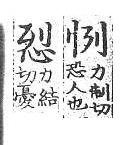 㤠
力制切
恐人也
力結
切憂